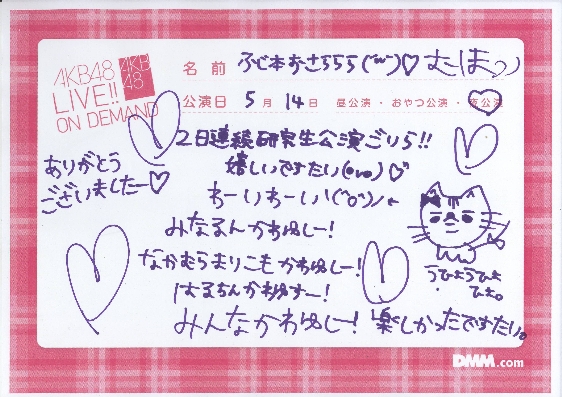 AKB48
LIVE!!
ON DEMAND
AKB
48
名前 ふじ本おさららら(''')♡ むほっつ
公演日 5月14日 昼公演・おやつ公演・夜公演
2日連続研究生公演ごりら!!
嬉しいですたい(ovo)♡
わーいわーい!(^o^)ノ
ありがとう
ございましたー♡
みなるんかわゆしー!
なかむらまりこもかわゆしー!
はるちんかわゆすー!
みんなかわゆしー! 楽しかったですたい。
うひょうひょ
ひょ。
DMM.com